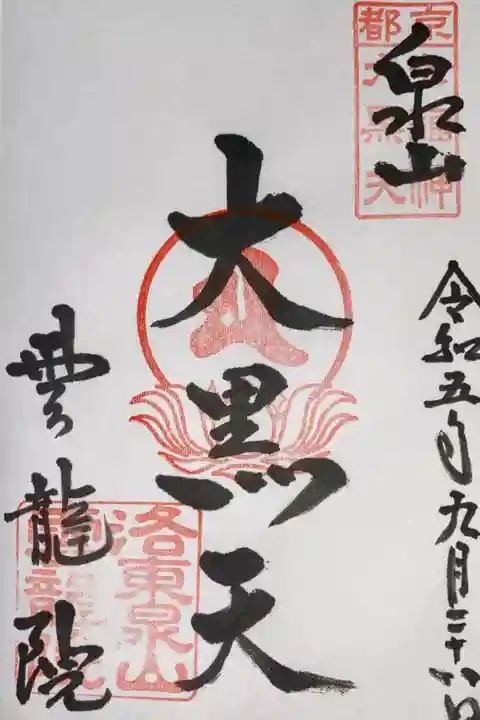 泉山
京都七福神
大黒天
令和五年九月二十八日
大黒天
雲龍院
洛東泉山